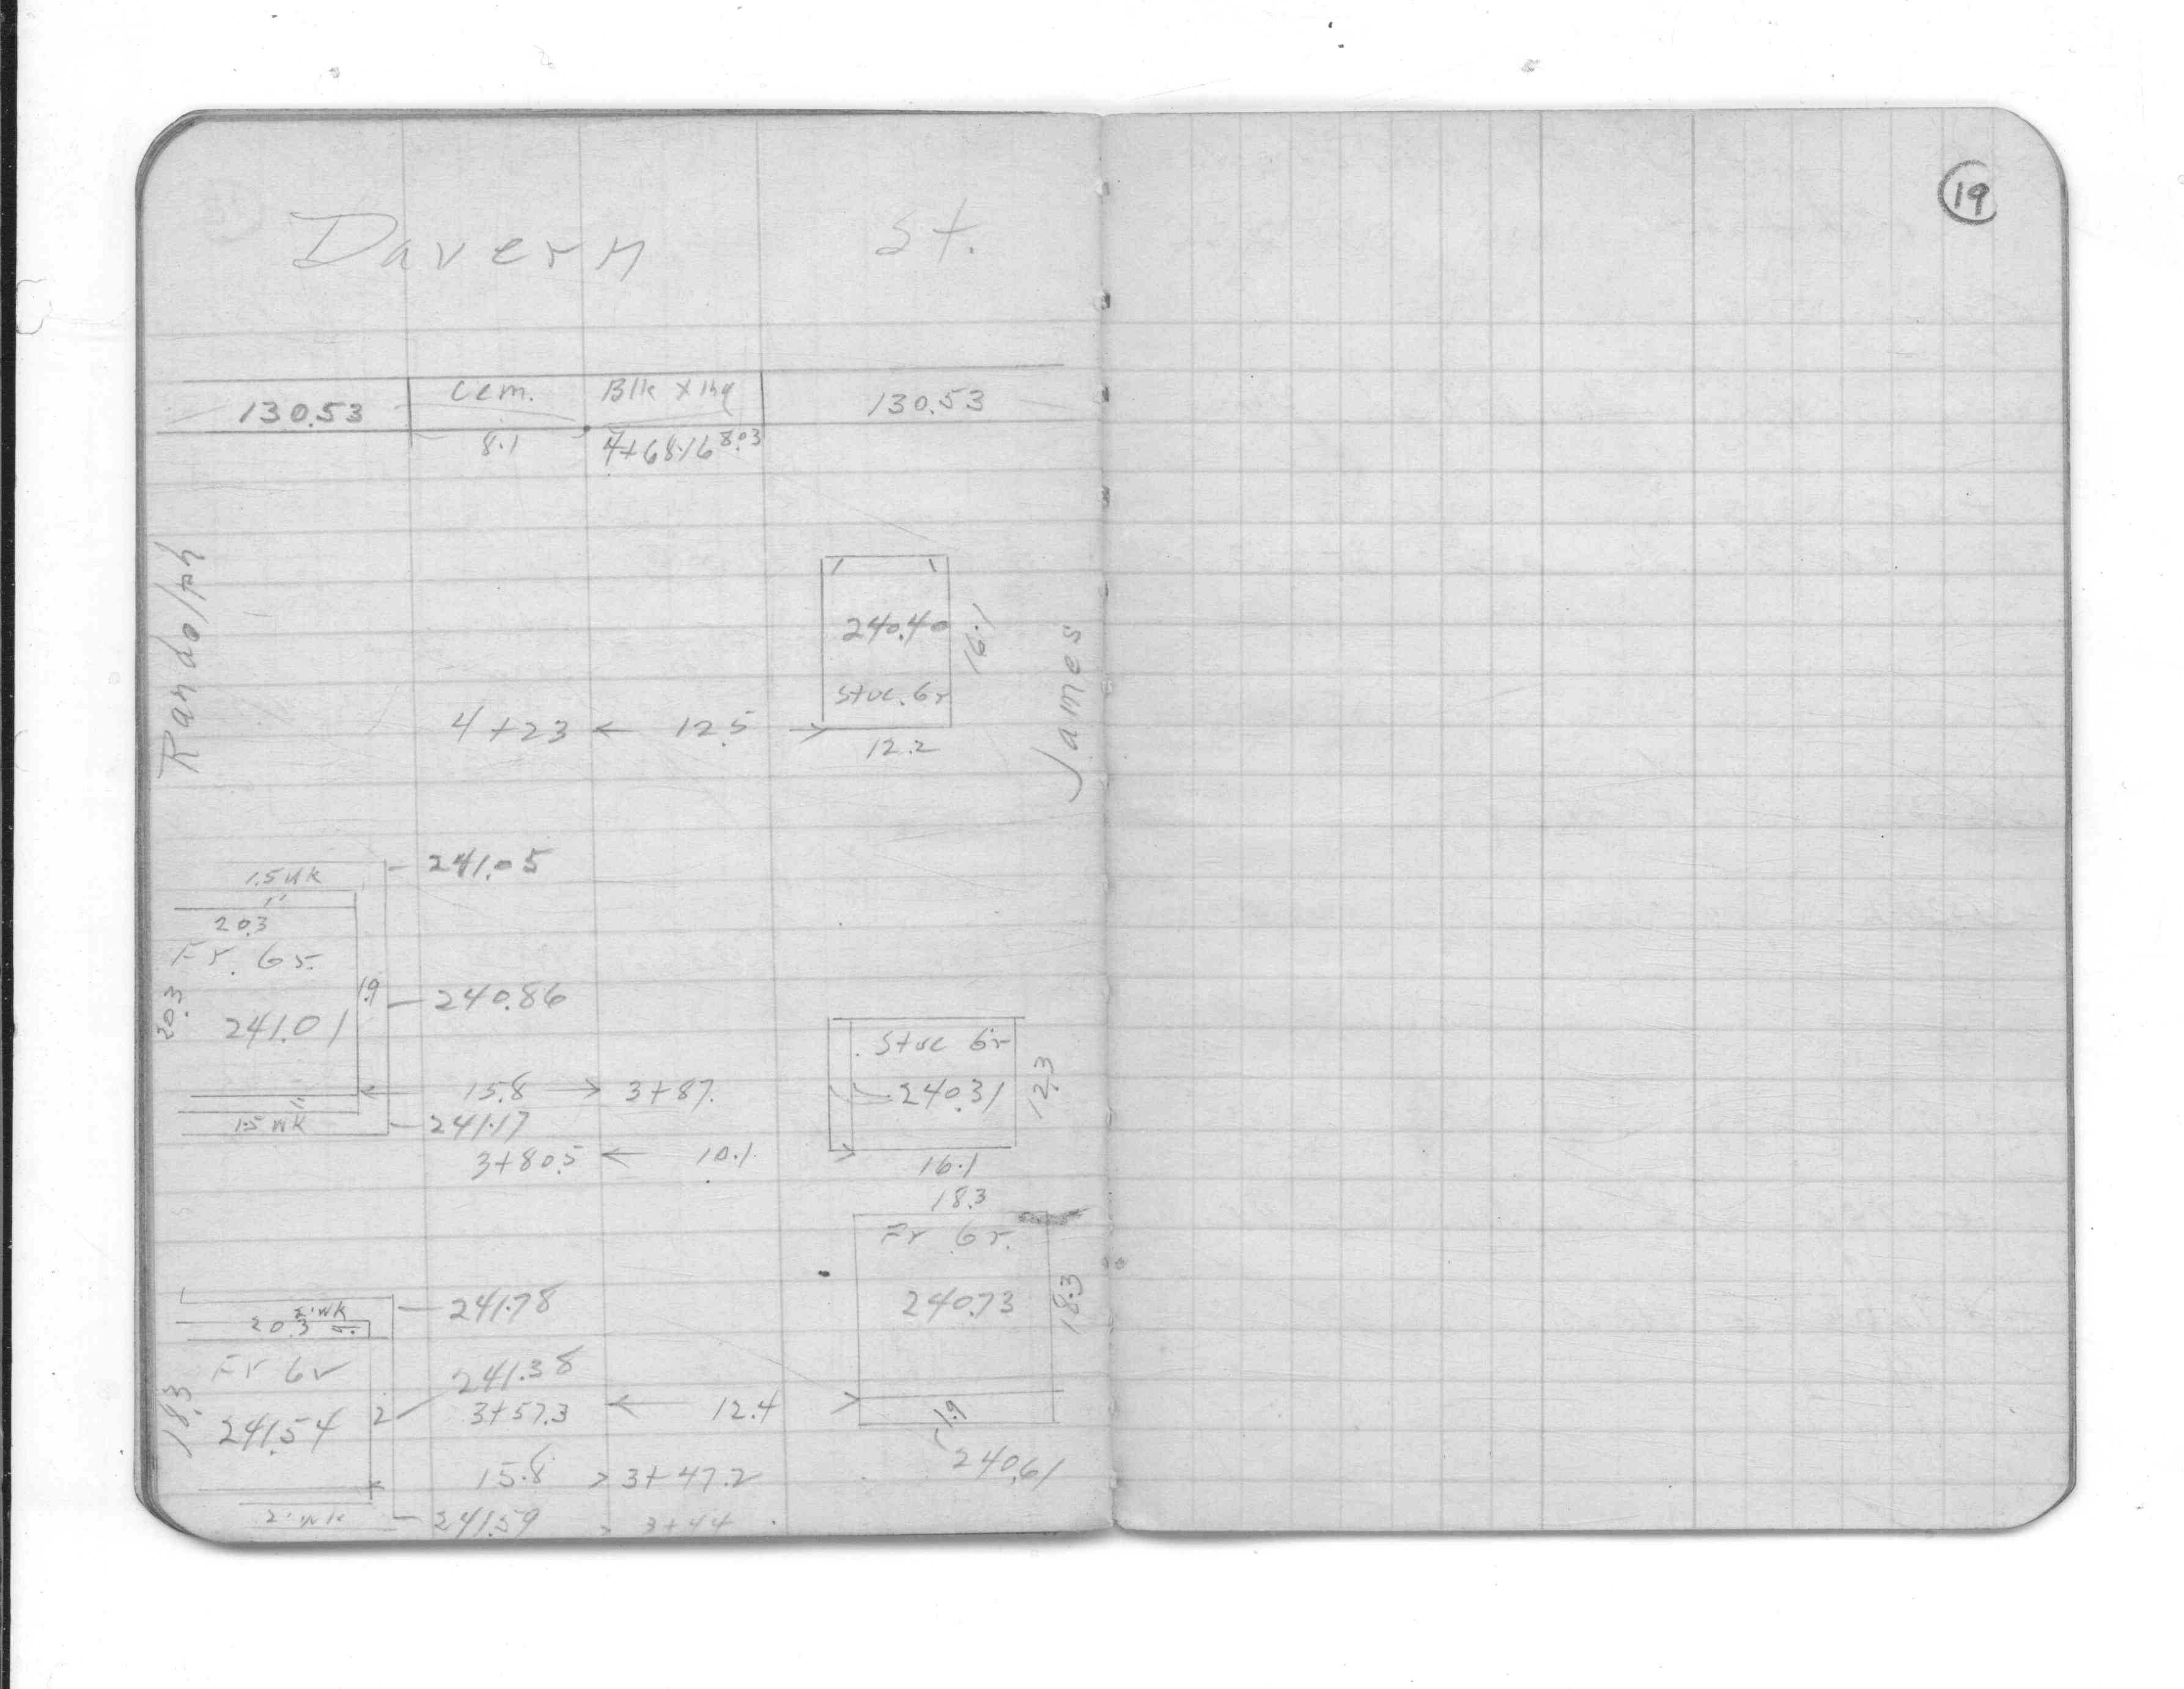 19
Davern St.
130.53 Cem. Blk Xing 130.53
8.1 4+68.16 8.03
Randolph
James
240.40
16.1
Stuc. Gr
4+23 ← 12.5 →
12.2
241.05
1.5 wk
1'
20.3
Fr. Gr.
1.9
240.86
20.3
241.01
Stuc Gr
240.31
12.3
15.8 → 3+87.
1.5 wk
241.17
3+80.5 ← 10.1
16.1
18.3
Fr Gr.
240.73
18.3
241.78
2' wk
20.3
Fr Gr
241.38
18.3
241.54
2
3+57.3 ← 12.4 →
1.9
240.61
15.8 > 3+47.2
2' wk
241.59 > 3+44